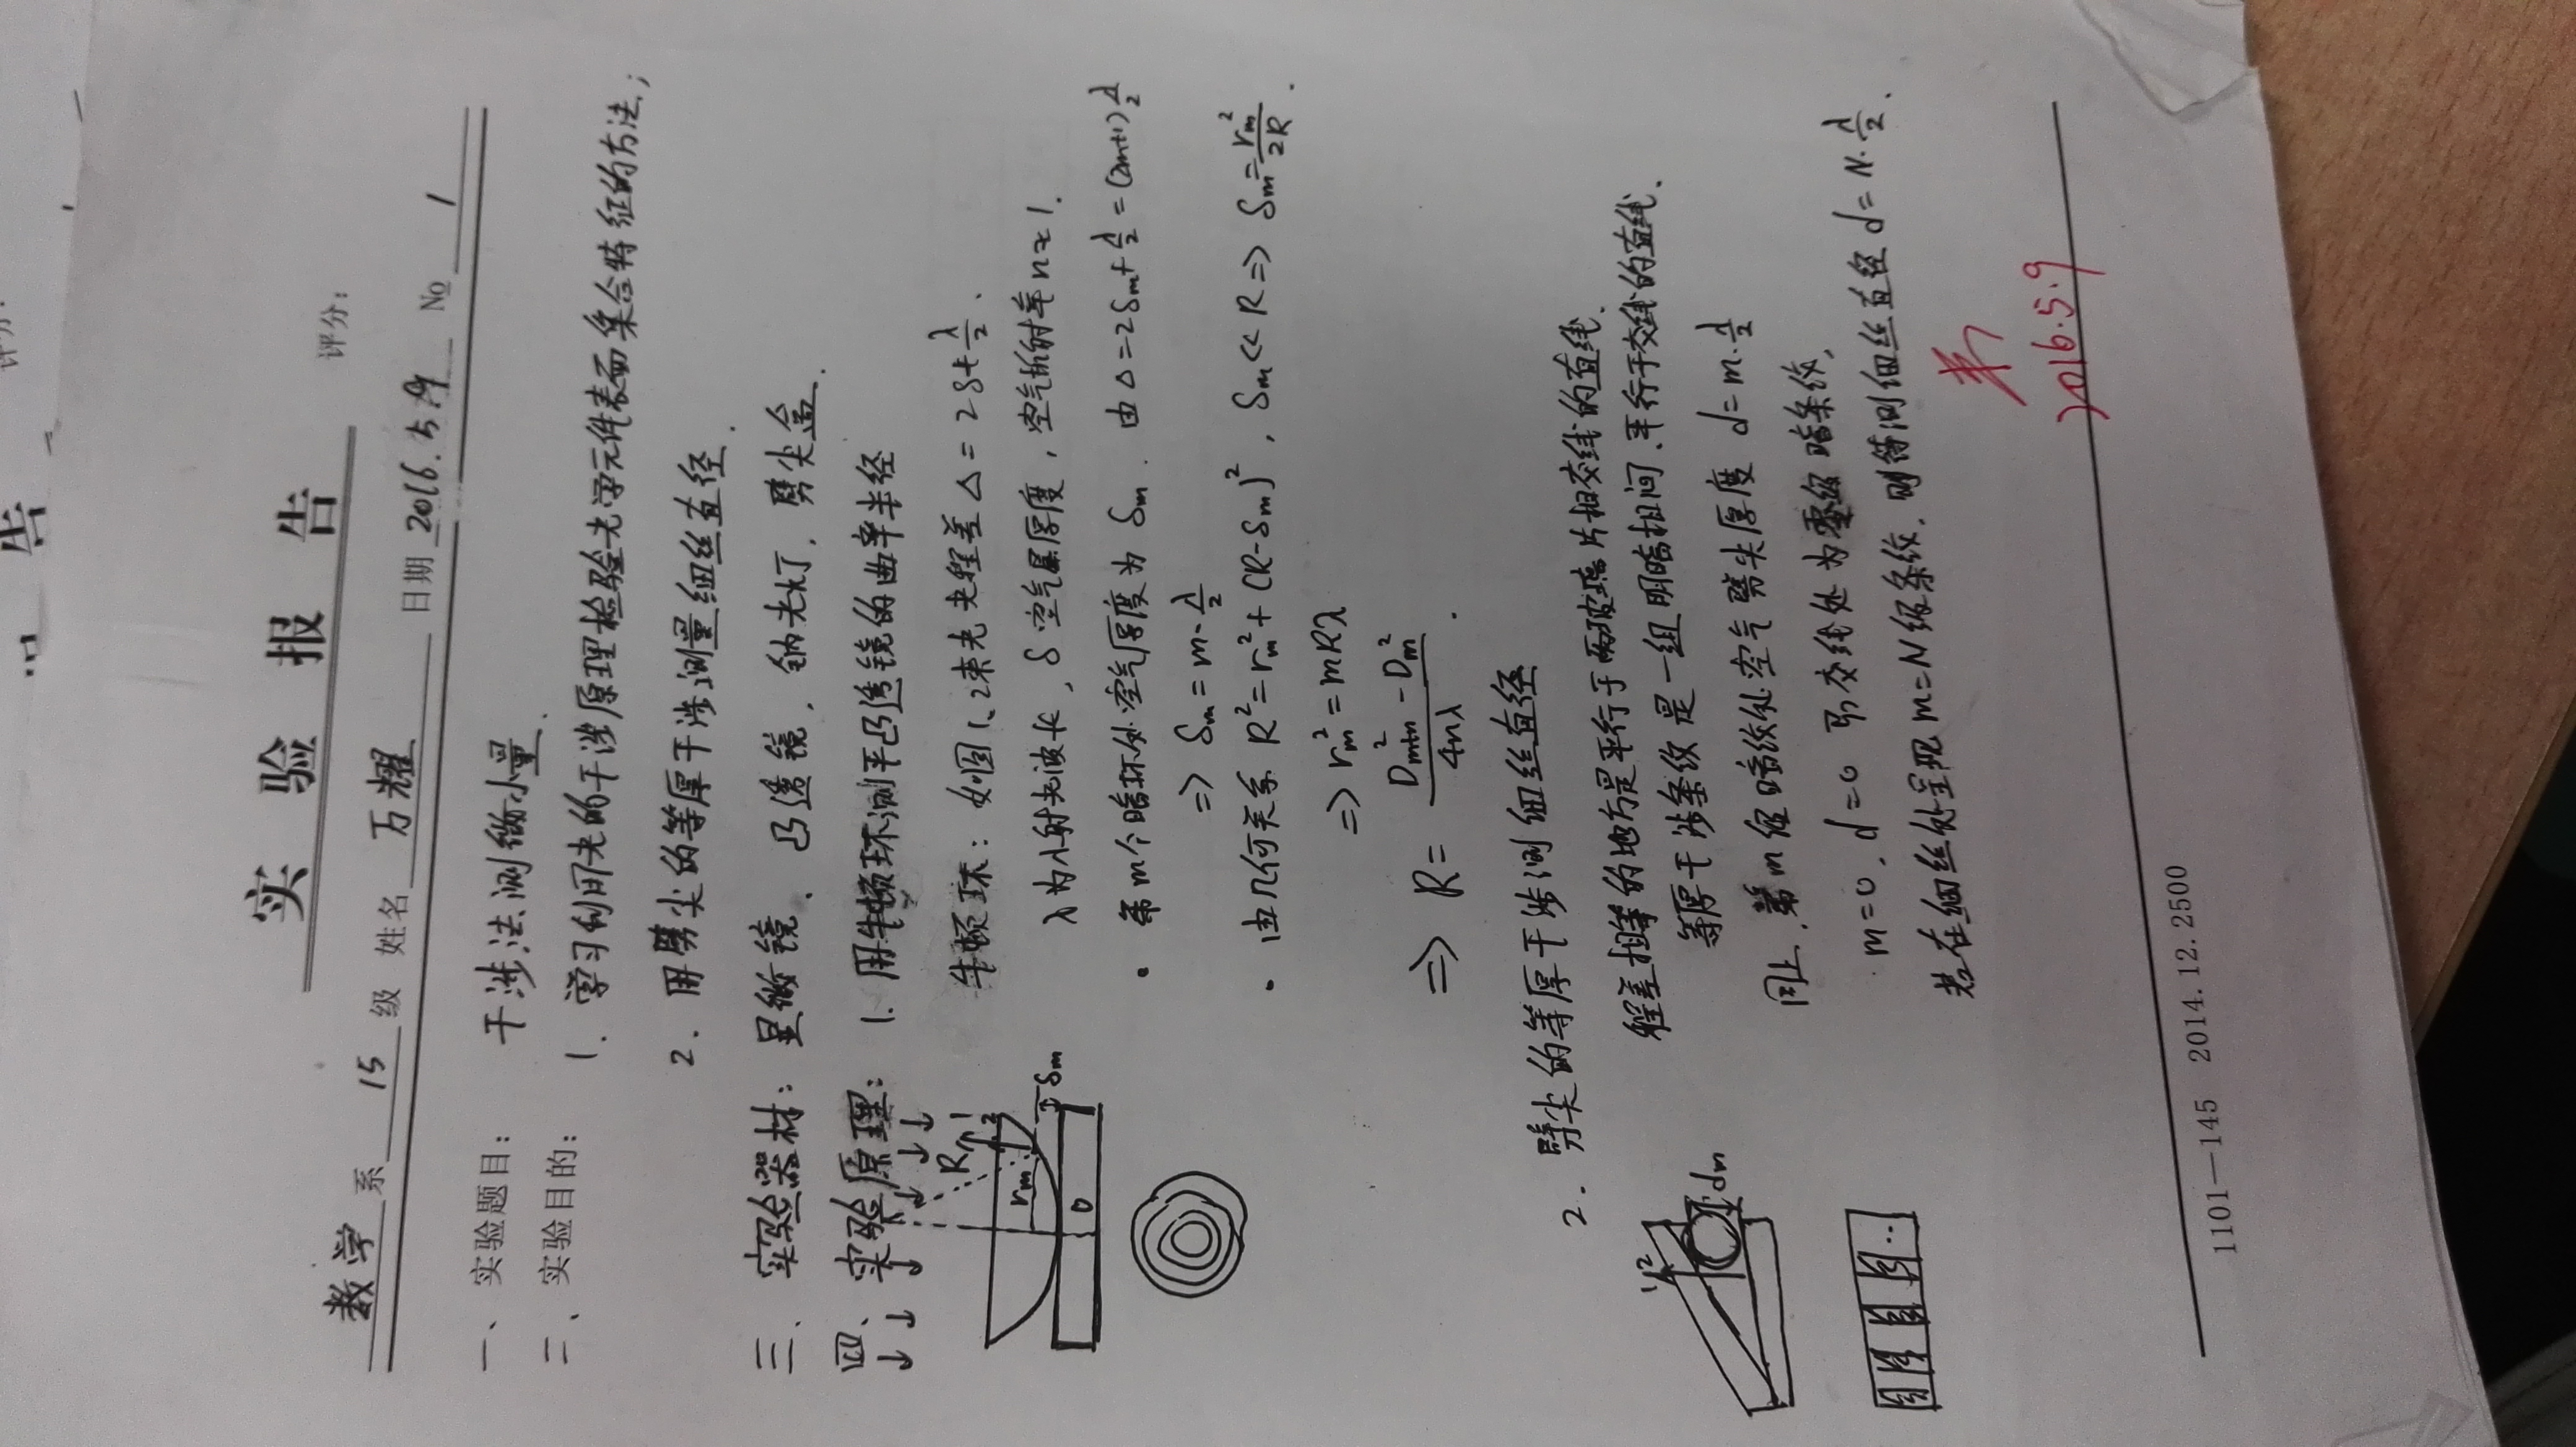 告
评分:
实 验 报 告
评分:
数学 系 15 级 姓名 万耀 日期 2016.5.9 No 1
一、实验题目: 干涉法测微小量.
二、实验目的: 1. 学习利用光的干涉原理检验光学元件表面集合特征的方法;
2. 用劈尖的等厚干涉测量细丝直径.
三、实验器材: 显微镜、凸透镜、钠光灯、劈尖盒.
四、实验原理: 1. 用牛顿环测平凸透镜的曲率半径
牛顿环: 如图1、2束光光程差 Δ = 2δ+λ/2.
λ为入射光波长, δ空气层厚度, 空气折射率 n≈1.
· 第m个暗环处空气厚度为 δm. 由 Δ=2δm+λ/2=(2m+1)λ/2
⇒ δm = m·λ/2
· 由几何关系 R²=rm²+(R-δm)², δm<<R ⇒ δm=rm²/2R.
⇒ rm²=mRλ
⇒ R = (D²m+n - D²m)/4nλ.
R
1
2
rm
δm
0
2. 劈尖的等厚干涉测细丝直径
程差相等的地方是平行于两玻璃片相交线的直线.
等厚干涉条纹是一组明暗相间、平行于交线的直线.
同上, 第m级暗纹处空气劈尖厚度 d=m·λ/2
m=0, d=0 即交线处为零级暗条纹,
若在细丝处呈现m=N级条纹, 则待测细丝直径 d=N·λ/2.
1
2
dm
2016.5.9
1101—145 2014.12.2500